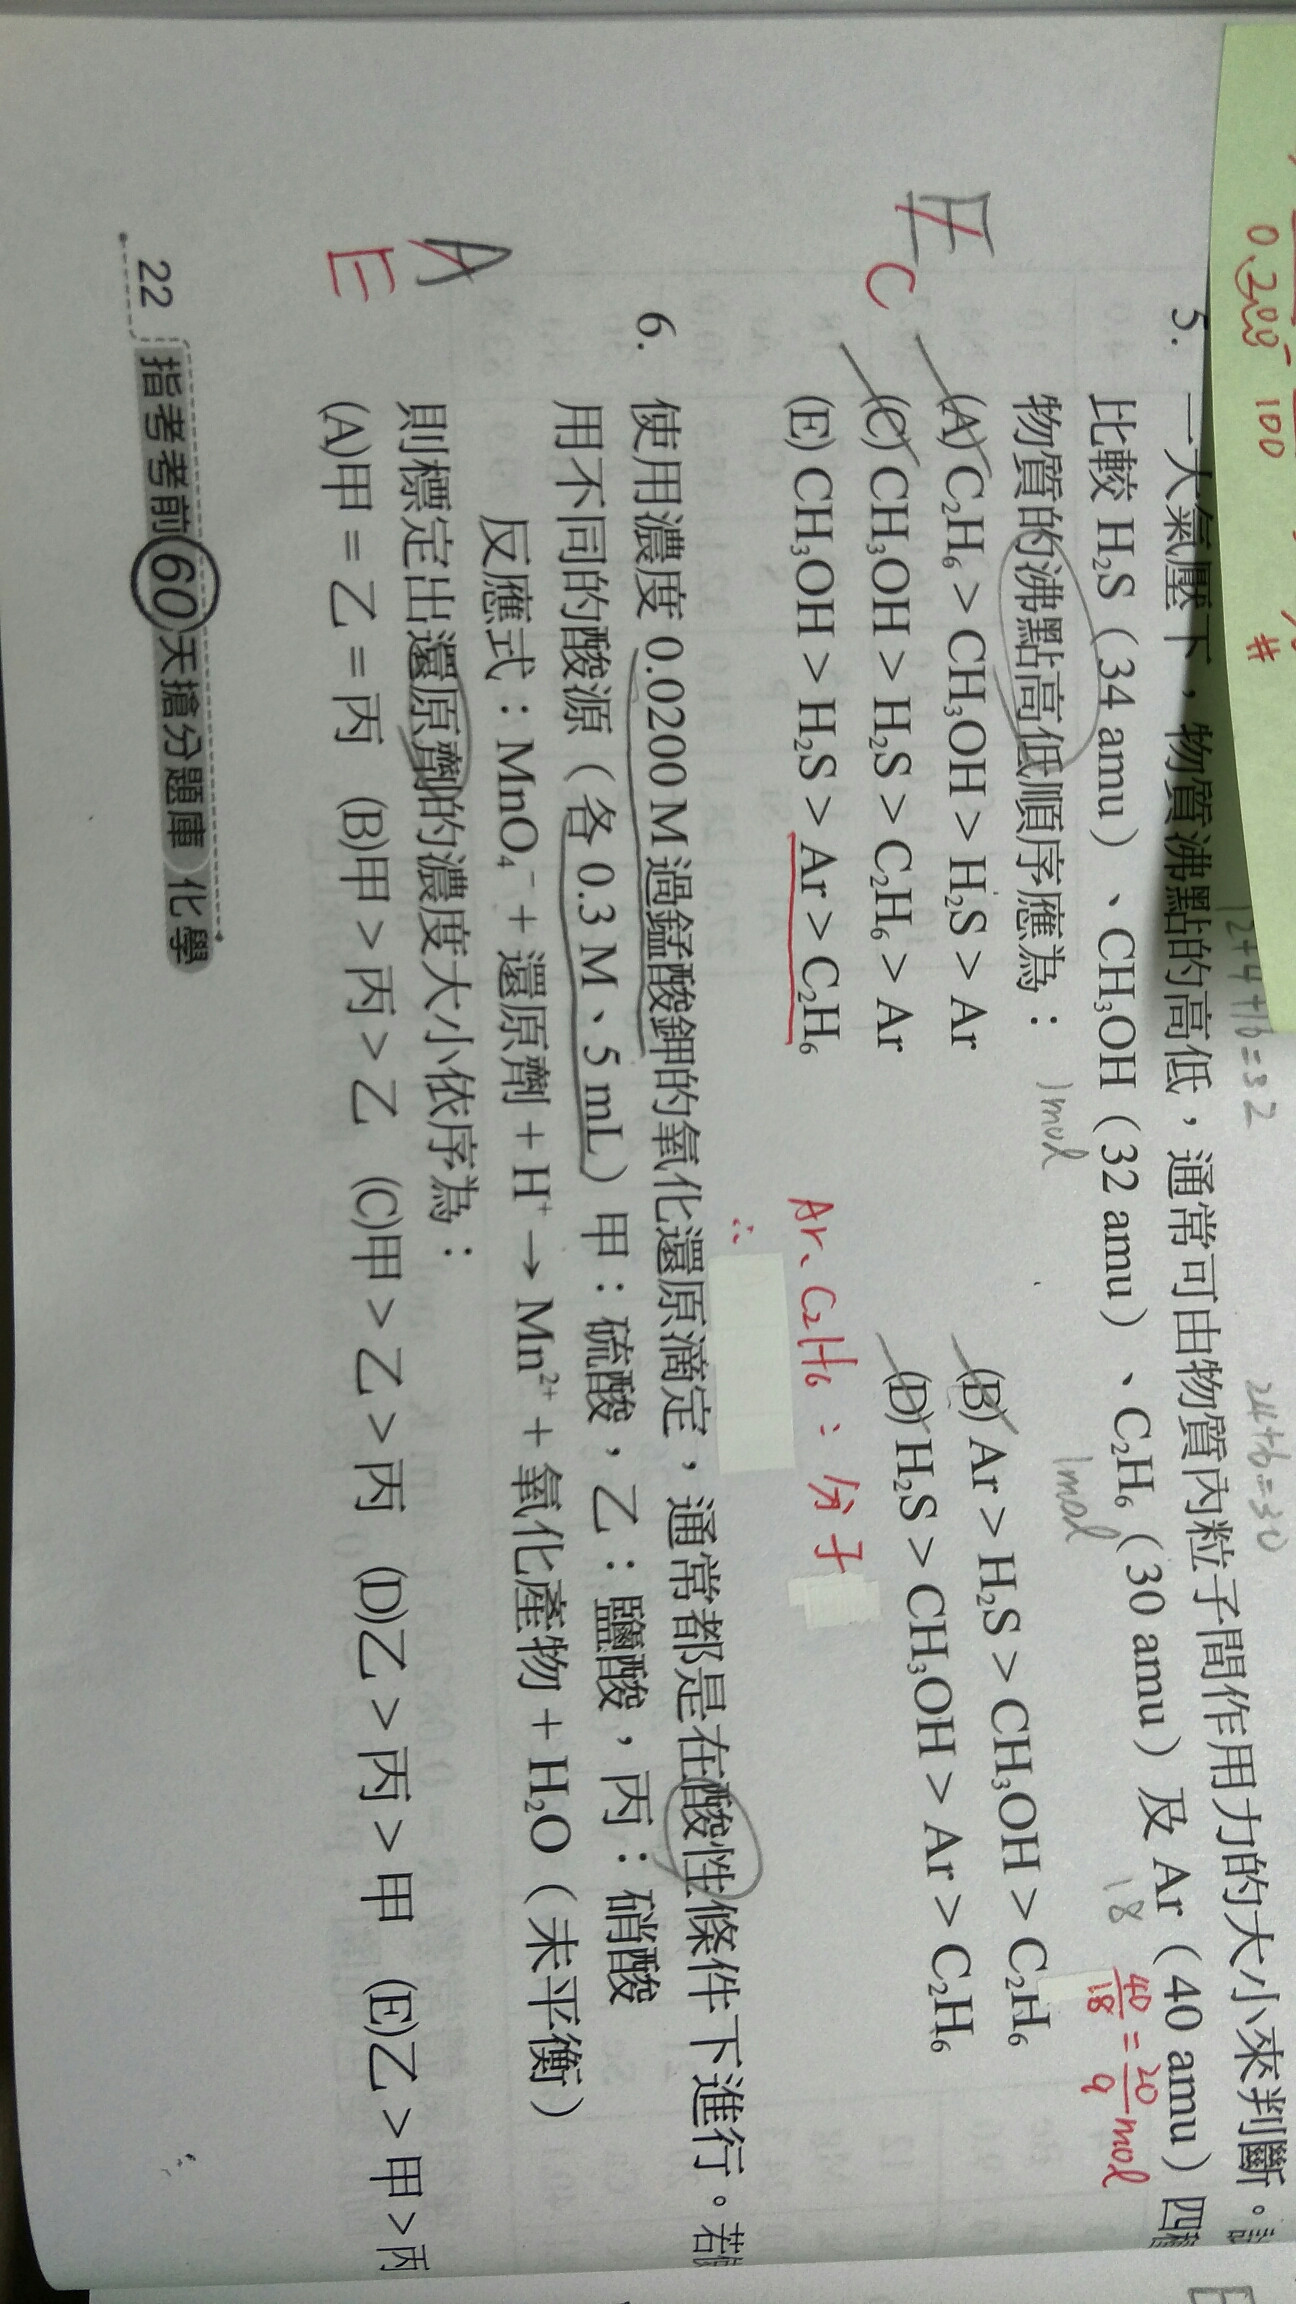 0.200 100 #
12+4+16=32
24+6=30
5. 一大氣壓下，物質沸點的高低，通常可由物質內粒子間作用力的大小來判斷。
比較 H₂S（34 amu）、CH₃OH（32 amu）、C₂H₆（30 amu）及 Ar（40 amu）四
1mol
1mol
18
40/18 = 20/9 mol
物質的沸點高低順序應為：
E C
(A) C₂H₆ > CH₃OH > H₂S > Ar
(B) Ar > H₂S > CH₃OH > C₂H₆
(C) CH₃OH > H₂S > C₂H₆ > Ar
(D) H₂S > CH₃OH > Ar > C₂H₆
(E) CH₃OH > H₂S > Ar > C₂H₆
Ar、C₂H₆：分子
∴
6. 使用濃度 0.0200 M 過錳酸鉀的氧化還原滴定，通常都是在酸性條件下進行。若
用不同的酸源（各 0.3 M、5 mL）甲：硫酸，乙：鹽酸，丙：硝酸
反應式：MnO₄⁻ + 還原劑 + H⁺ → Mn²⁺ + 氧化產物 + H₂O（未平衡）
A E
則標定出還原劑的濃度大小依序為：
(A)甲 = 乙 = 丙 (B)甲 > 丙 > 乙 (C)甲 > 乙 > 丙 (D)乙 > 丙 > 甲 (E)乙 > 甲 > 丙
22 指考考前60天搶分題庫 化學